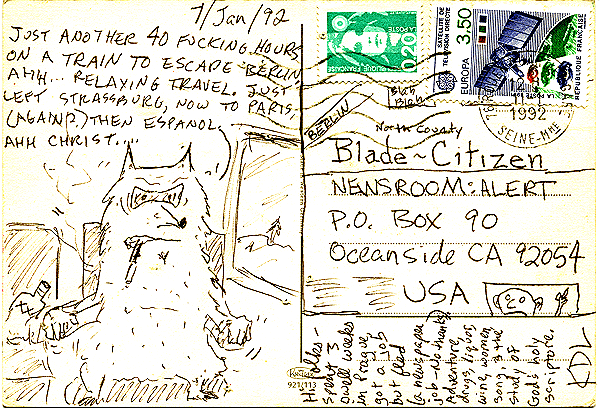 7/Jan/92
JUST ANOTHER 40 FUCKING HOURS
ON A TRAIN TO ESCAPE BERLIN,
AHH... RELAXING TRAVEL. JUST
LEFT STRASSBURG, NOW TO PARIS,
(AGAIN?) THEN ESPANOL.
AHH CHRIST....
LA POSTE
0,20
REPUBLIQUE FRANÇAISE
SATELLITE DE
TELEVISION DIRECTE
EUROPA 3,50
REPUBLIQUE FRANÇAISE
LA POSTE 1991
1992
SEINE-MNE
Blah
Blah
BERLIN
North County
Blade~Citizen
NEWSROOM: ALERT
P.O. BOX 90
Oceanside CA 92054
USA
921/113
Hi folks-
spent 3
swell weeks
in Prague,
got a job
but fled
(a newspaper
job-No thanks)
Adventure,
drugs, liquor,
wine, women,
song, & the
study of
God's holy
scripture.
KDL